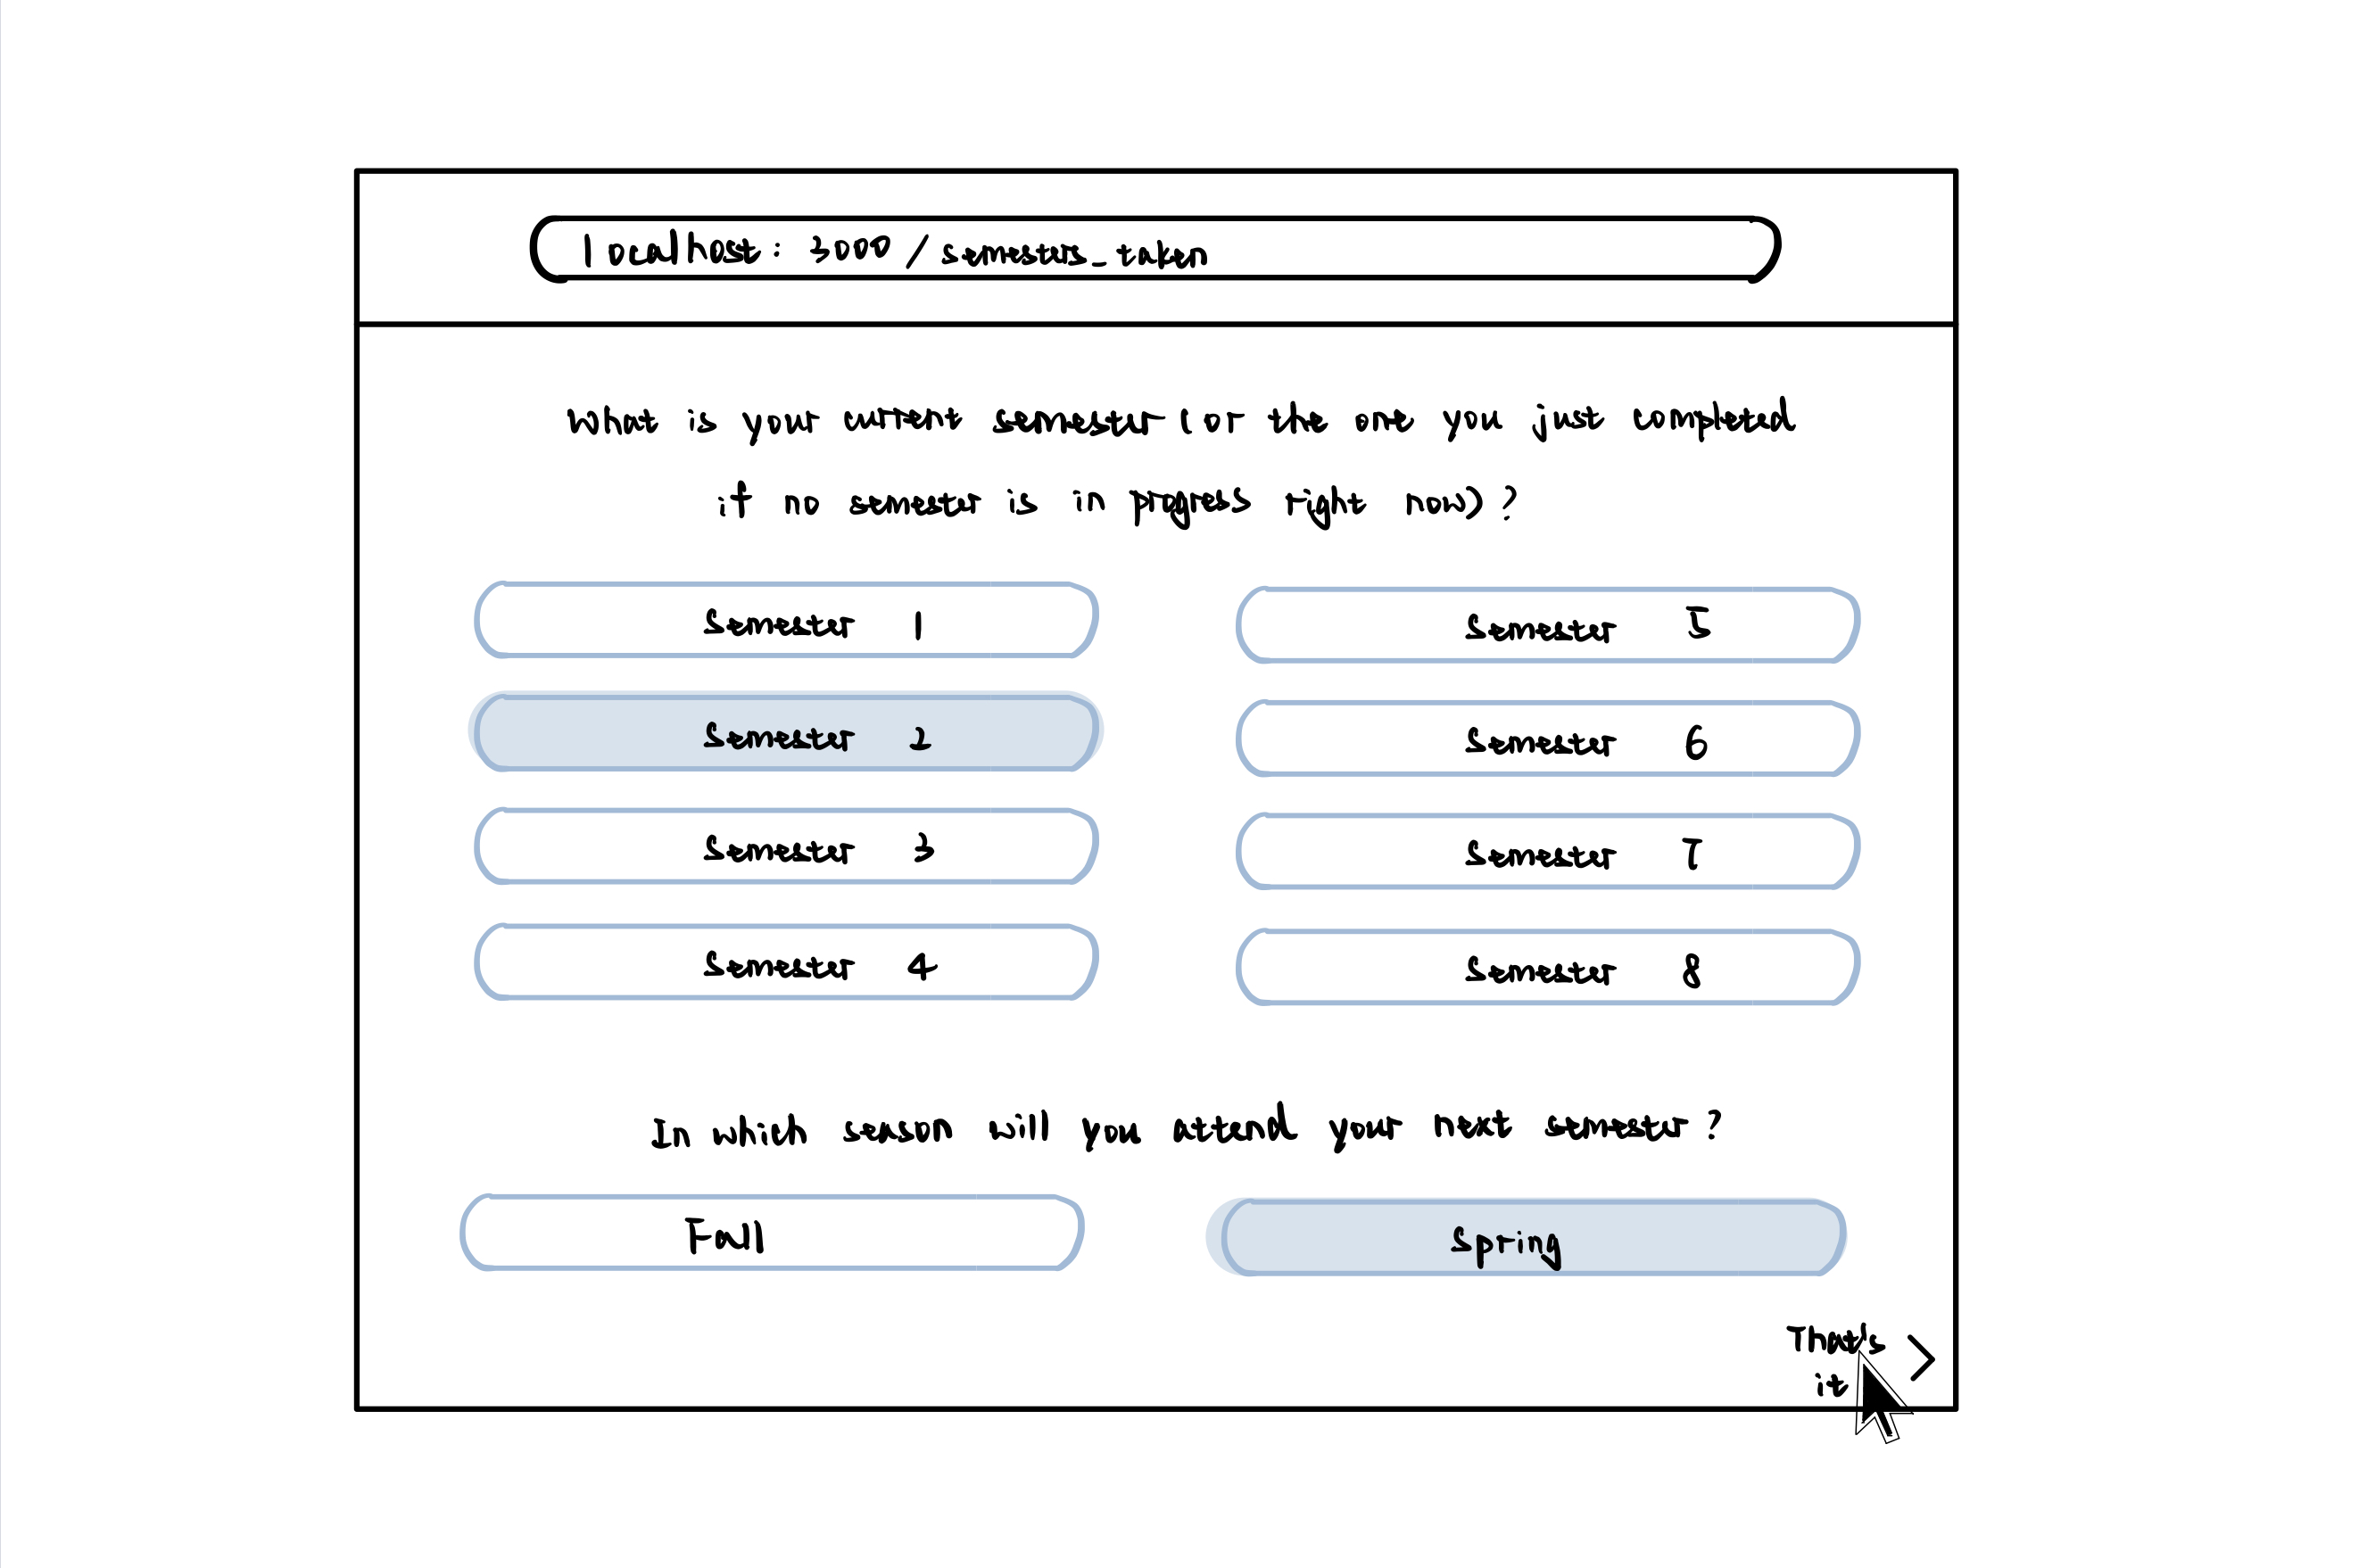 localhost: 3000 / semester_taken
What is your current semester (or the one you just completed
if no semester is in progress right now)?
Semester 1
Semester 5
Semester 2
Semester 6
Semester 3
Semester 7
Semester 4
Semester 8
In which season will you attend your next semester?
Fall
Spring
That's >
it